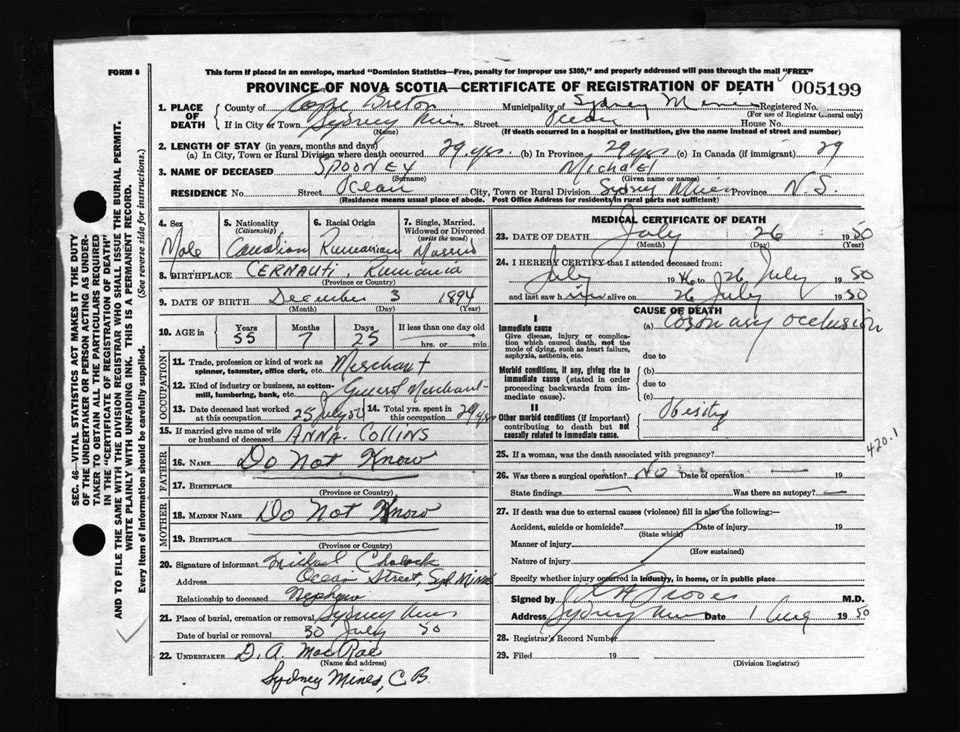 FORM 6
This form if placed in an envelope, marked "Dominion Statistics—Free, penalty for improper use $300," and properly addressed will pass through the mail "FREE"
PROVINCE OF NOVA SCOTIA—CERTIFICATE OF REGISTRATION OF DEATH 005199
SEC. 46—VITAL STATISTICS ACT MAKES IT THE DUTY
OF THE UNDERTAKER OR PERSON ACTING AS UNDER-
TAKER TO OBTAIN ALL THE PARTICULARS REQUIRED
IN THE "CERTIFICATE OF REGISTRATION OF DEATH"
AND TO FILE THE SAME WITH THE DIVISION REGISTRAR WHO SHALL ISSUE THE BURIAL PERMIT.
WRITE PLAINLY WITH UNFADING INK. THIS IS A PERMANENT RECORD.
Every item of Information should be carefully supplied. (See reverse side for instructions.)
1. PLACE OF DEATH
County of Cape Breton Municipality of Sydney Mines Registered No.
(For use of Registrar General only)
If in City or Town Sydney Mines Street Ocean House No.
(Name) (If death occurred in a hospital or institution, give the name instead of street and number)
2. LENGTH OF STAY (in years, months and days)
(a) In City, Town or Rural Division where death occurred 29 yrs. (b) In Province 29 yrs (c) In Canada (if immigrant) 29
3. NAME OF DECEASED SPOONEY MICHAEL
(Surname) (Given name or names)
RESIDENCE No. Street Ocean City, Town or Rural Division Sydney Mines Province N.S.
(Residence means usual place of abode. Post Office Address for residents in rural parts not sufficient)
4. Sex Male
5. Nationality (Citizenship) Canadian
6. Racial Origin Rumanian
7. Single, Married, Widowed or Divorced (write the word) Married
8. BIRTHPLACE CERNAUTI, Rumania
(Province or Country)
9. DATE OF BIRTH December 3 1894
(Month) (Day) (Year)
10. AGE in Years Months Days If less than one day old
55 7 25 hrs. or min.
OCCUPATION
11. Trade, profession or kind of work as spinner, teamster, office clerk, etc. Merchant
12. Kind of industry or business, as cotton-mill, lumbering, bank, etc. Merchant
13. Date deceased last worked at this occupation 25 July 50 14. Total yrs. spent in this occupation 29 yrs
15. If married give name of wife or husband of deceased ANNA. COLLINS
FATHER
16. NAME Do Not Know
17. BIRTHPLACE
(Province or Country)
MOTHER
18. MAIDEN NAME Do Not Know
19. BIRTHPLACE
(Province or Country)
20. Signature of informant Michael
Address Ocean Street, Syd. Mines
Relationship to deceased Nephew
21. Place of burial, cremation or removal Sydney Mines
Date of burial or removal 30 July 50
22. UNDERTAKER D. A. MacRae
(Name and address)
Sydney Mines, C.B.
MEDICAL CERTIFICATE OF DEATH
23. DATE OF DEATH July 26 1950
(Month) (Day) (Year)
24. I HEREBY CERTIFY that I attended deceased from:
July 1946 to 26 July 1950
and last saw him alive on 26 July 1950
CAUSE OF DEATH
I
Immediate cause (a) Coronary occlusion
Give disease, injury or complication which caused death, not the mode of dying, such as heart failure, asphyxia, asthenia, etc.
due to
Morbid conditions, if any, giving rise to immediate cause (stated in order proceeding backwards from immediate cause).
(b)
due to
(c)
II
Other morbid conditions (if important) contributing to death but not causally related to immediate cause.
Obesity
420.1
25. If a woman, was the death associated with pregnancy?
26. Was there a surgical operation? No Date of operation — 19
State findings — Was there an autopsy? —
27. If death was due to external causes (violence) fill in also the following:—
Accident, suicide or homicide? Date of injury 19
(State which)
Manner of injury
(How sustained)
Nature of injury
Specify whether injury occurred in industry, in home, or in public place
Signed by M.D.
Address Sydney Mines Date 1 Aug 1950
28. Registrar's Record Number
29. Filed 19
(Division Registrar)